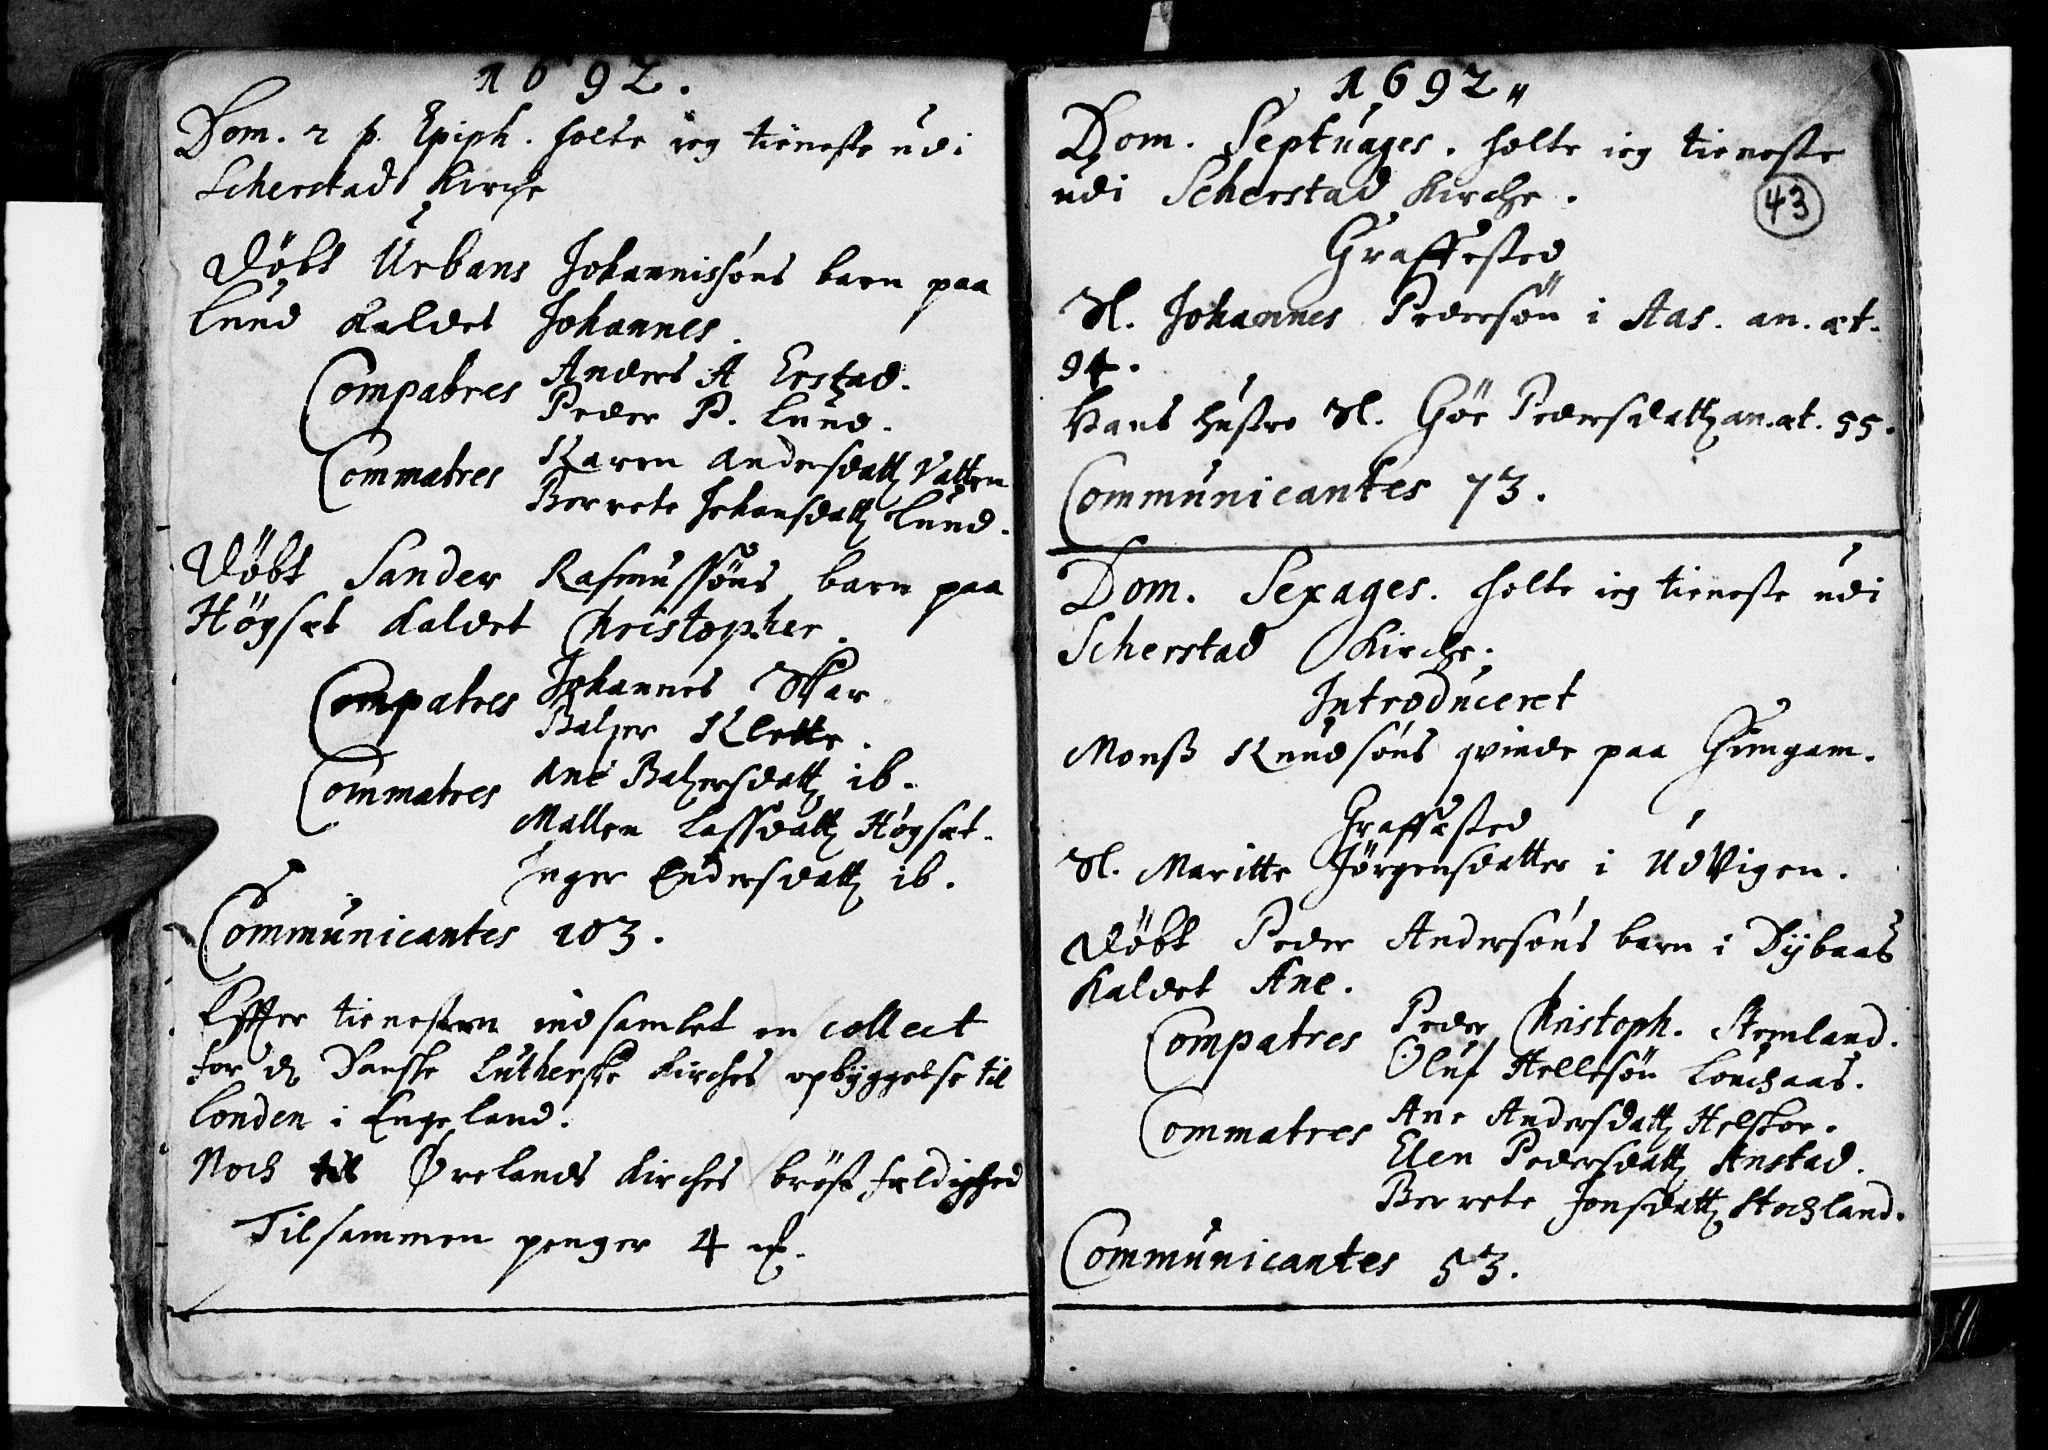 1692.
Dom. 2 p. Epiph. holte ieg tieneste udi
Scherstad Kirche
Döbt Urbans Johannissöns barn paa
Lund kaldet Johannes.
Compatres Anders A Erstad.
Peder P. Lund.
Commatres Karen Andersdatt Vatten
Berrete Johansdatt Lund.
Döbt Sander Rasmussöns barn paa
Högsæt kaldet Christopher.
Compatres Johannes Skar
Balzer Klette.
Commatres Ane Balzersdatt ib.
Mallen Lassdatt Högsæt.
Inger Endersdatt ib.
Communicantes 103.
Effter tienesten indsamlet en collect
for d Danske Lutherske Kirches opbyggelse til
Londen i Engeland.
Noch til Ørelands Kirches bröstfældighed
Tilsammen penger 4
1692"
Dom. Septuages. holte ieg tieneste
udi Scherstad Kirche.
43
Graffested
Sl. Johannes Pedersön i Aas. an. æt.
94.
Hans hustro Sl. Göe Pedersdatt an. æt. 55.
Communicantes 73.
Dom. Sexages. holte ieg tieneste udi
Scherstad Kirche.
Introduceret
Monss Knudsöns qvinde paa Gimgam.
Graffæsted
Sl. Maritte Jörgensdatter i UdVigen.
Döbt Peder Andersöns barn i Dybaas
kaldet Ane.
Compatres Peder Christoph. Stemland.
Oluf Hellesön Lonchaas.
Commatres Ane Andersdatt Helskoe.
Elen Pedersdatt Anstad.
Berrete Jonsdatt Stochland.
Communicantes 53.